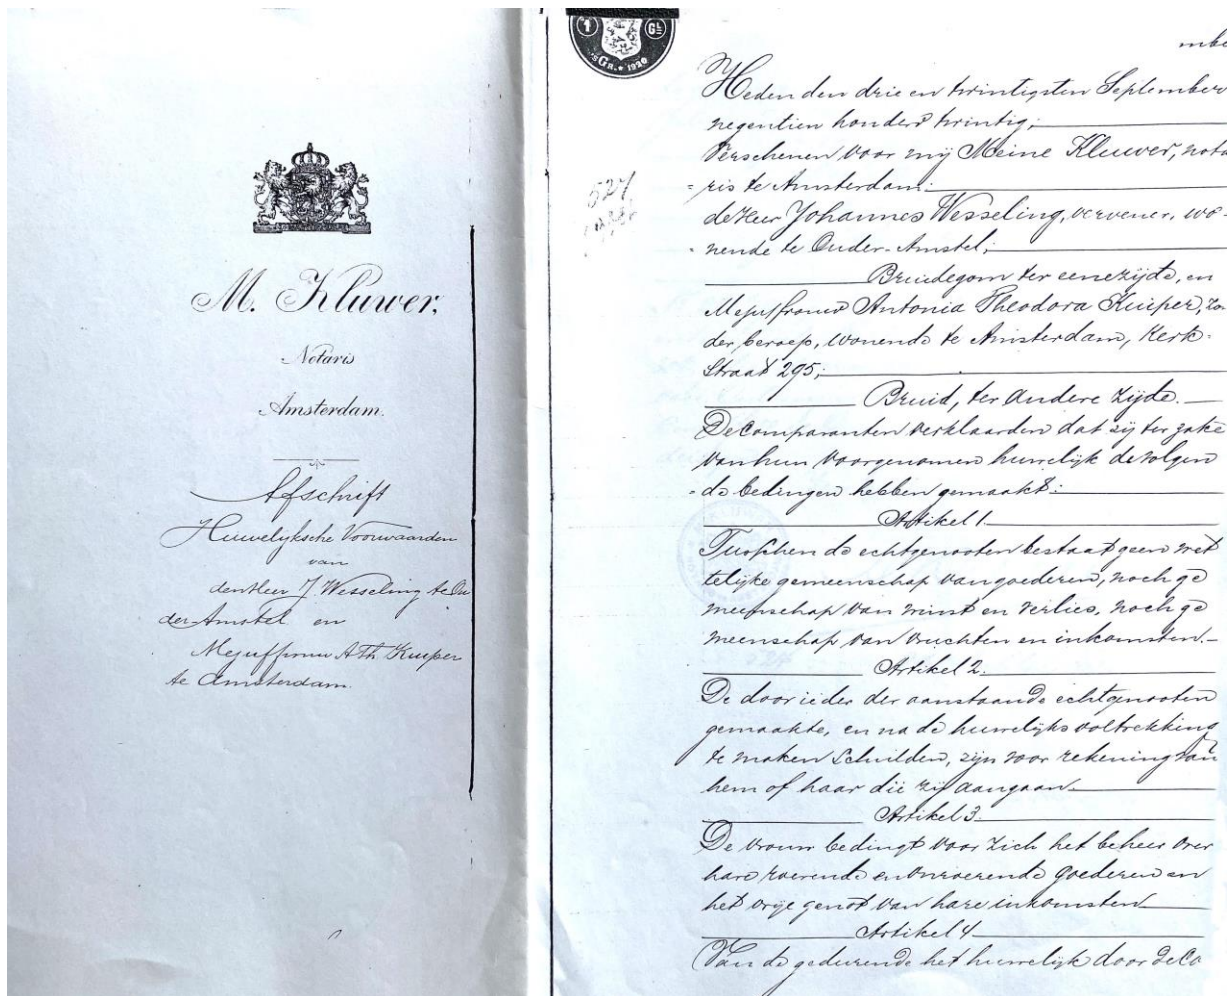 M. Kluwer,
Notaris
Amsterdam.
Afschrift
Huwelyksche Voorwaarden
van
den Heer J. Wesseling te Ou
der-Amstel en
Mejuffrouw A Th Kuiper
te Amsterdam.
1 GL
'sGR. * 1920
mbe
Heden den drie en twintigsten September
negentien honderd twintig;
Verschenen voor mij Meine Kluwer, nota
= ris te Amsterdam:
de Heer Johannes Wesseling, vervener, wo-
- nende te Ouder-Amstel;
Bruidegom ter eenezijde, en
Mejuffrouw Antonia Theodora Kuiper, zon
der beroep, wonende te Amsterdam, Kerk-
straat 295;
Bruid, ter andere zijde.
De Comparanten verklaarden dat zij ter zake
van hun voorgenomen huwelijk de volgen
- de bedingen hebben gemaakt:
Artikel 1
Tusschen de echtgenooten bestaat geen wet
telijke gemeenschap van goederen, noch ge
meenschap van winst en verlies, noch ge
meenschap van vruchten en inkomsten.
Artikel 2.
De door ieder der aanstaande echtgenooten
gemaakte, en na de huwelijks voltrekking
te maken schulden, zijn voor rekening van
hem of haar die zij aangaan.
Artikel 3.
De vrouw bedingt voor zich het beheer over
hare roerende en onroerende goederen en
het vrije genot van hare inkomsten
Artikel 4
Van de gedurende het huwelijk door de Co